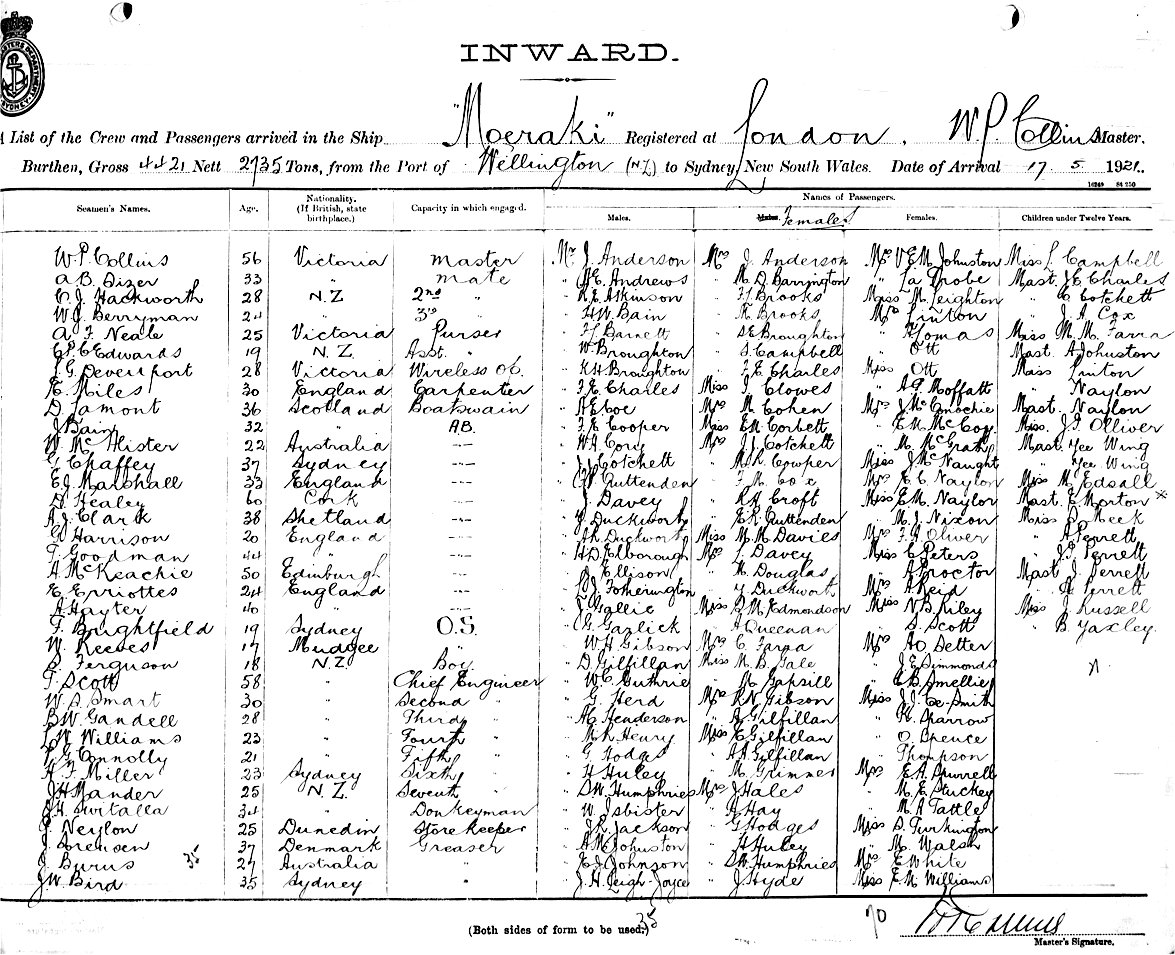 INWARD.
A List of the Crew and Passengers arrived in the Ship "Moeraki" Registered at London. W. P. Collins Master.
Burthen, Gross 4421 Nett 2735 Tons, from the Port of Wellington (NZ) to Sydney, New South Wales. Date of Arrival 17 5 1921.
16249 84 250
Seamen's Names. Age. Nationality. (If British, state birthplace.) Capacity in which engaged. Names of Passengers.
Males. Males. Females Females. Children under Twelve Years.
W. P. Collins 56 Victoria master Mr J. Anderson Mrs J. Anderson Mrs V. E. M. Johnston Miss L. Campbell
A. B. Sizer 33 " mate " H. E. Andrews " M. D. Barrington " La Trobe Mast. J. E. Charles
C. J. Hackworth 28 N.Z 2nd " " R. E. Atkinson " F. J. Brooks Miss M. Leighton " C Cotchett
W. J. Berryman 24 " 3rd " " H. W. Bain " R. Brooks Mrs Linton " J. A. Cox
A. F. Neale 25 Victoria Purser " F. J. Barnett " S. E. Broughton " Thomas Miss M. M. Farra
Edwards 19 N.Z. Asst. " " W. Broughton " S. Campbell " Ott Mast. A Johnston
J. G. Devenport 28 Victoria Wireless Op. " K. H. Broughton " F. E. Charles Miss Ott Miss Linton
E. Miles 30 England Carpenter " F. E. Charles Miss J. Clowes " A. G. Moffatt " Naylon
D. Lamont 36 Scotland Boatswain " A E Coe Mrs M. Cohen Mrs J. McConochie Mast. Naylon
J. Bain 32 " A.B. " F. E. Cooper Miss E. M. Corbett " E. M. McCoy Miss. J. F. Olliver
W. McAlister 22 Australia " W. A. Cory Mrs J. J. Cotchett " M. McGrath Mast. Yee Wing
G. Chaffey 37 Sydney " J. J. Cotchett " M. R. Cowper Miss J. McNaught " Yee Wing
E. J. Marshall 33 England " Cruttenden " F. M. Cox Mrs E. C. Naylon Miss M. Edsall
D. Healey 60 Cork " J. Davey " K H Croft Miss E. M. Naylor Mast. E Morton x
A. J. Clark 38 Shetland " Y. Duckworth " E. R. Cruttenden " M. J. Nixon Miss D. Meek
G. Harrison 20 England " A. R. Duckworth Miss M. M. Davies Mrs F. A. Oliver " A Perrett
T. Goodman 44 " " H. D. Elborough Mrs L. Davey Miss C. Peters " J. F. Perrett
A. McKeachie 50 Edinburgh " J. Ellison " K. Douglas " A Proctor Mast. J. Perrett
E. Erriottes 24 England " J. Fotherington " Y. Duckworth Mrs A. Reid " Perrett
A Hayter 40 " " J. Gallie Miss M. Edmondson Miss N. B. Riley Miss J. Russell
F. Brightfield 19 Sydney O.S. " Garlick " A Queenan " D. Scott " B. Yaxley.
W. Reeves 17 Mudgee " " W. H. Gibson Mrs C. Farra Mrs Setter
D. Ferguson 18 N.Z Boy " D. Gilfillan Miss M. B. Gale " J. E. Simmonds
T. Scott 58 " Chief Engineer " W. C. Guthrie " M. Gapsill " E. B. Smellie
W. D. Smart 30 " Second " " G. Herd Mrs K. N. Gibson Miss J. J. Smith
B. W. Gandell 28 " Third " " A. E. Henderson " A Gilfillan " Sparrow
Williams 23 " Fourth " " M. R. Henry Miss E. Gilfillan " O. Spence
Connolly 21 " Fifth " " G. Hodges " A. A. Gilfillan " Thompson
H. F. Miller 23 Sydney Sixth " " H Huley " M. Grimmer Mrs E. A. Spurrell
J. H. Mander 25 N.Z. Seventh " " S. W. Humphries Mrs J Hales " M. E. Stuckey
Switalla 34 " Donkeyman " W. Isbister " A. Hay " M. A Tattle
P. Neylon 25 Dunedin Storekeeper " J. R. Jackson " G Hodges Miss D. Turkington
J. Sorensen 37 Denmark Greaser " A. M. Johnston " H Huley " M. Walsh
J. Burns 35 27 Australia " " E. J. Johnson " S. W. Humphries Mrs E. White
J. W. Bird 35 Sydney " " J. H. Leigh-Joyce " J. Hyde Miss E. M. Williams
(Both sides of form to be used.) 35 70
Master's Signature.